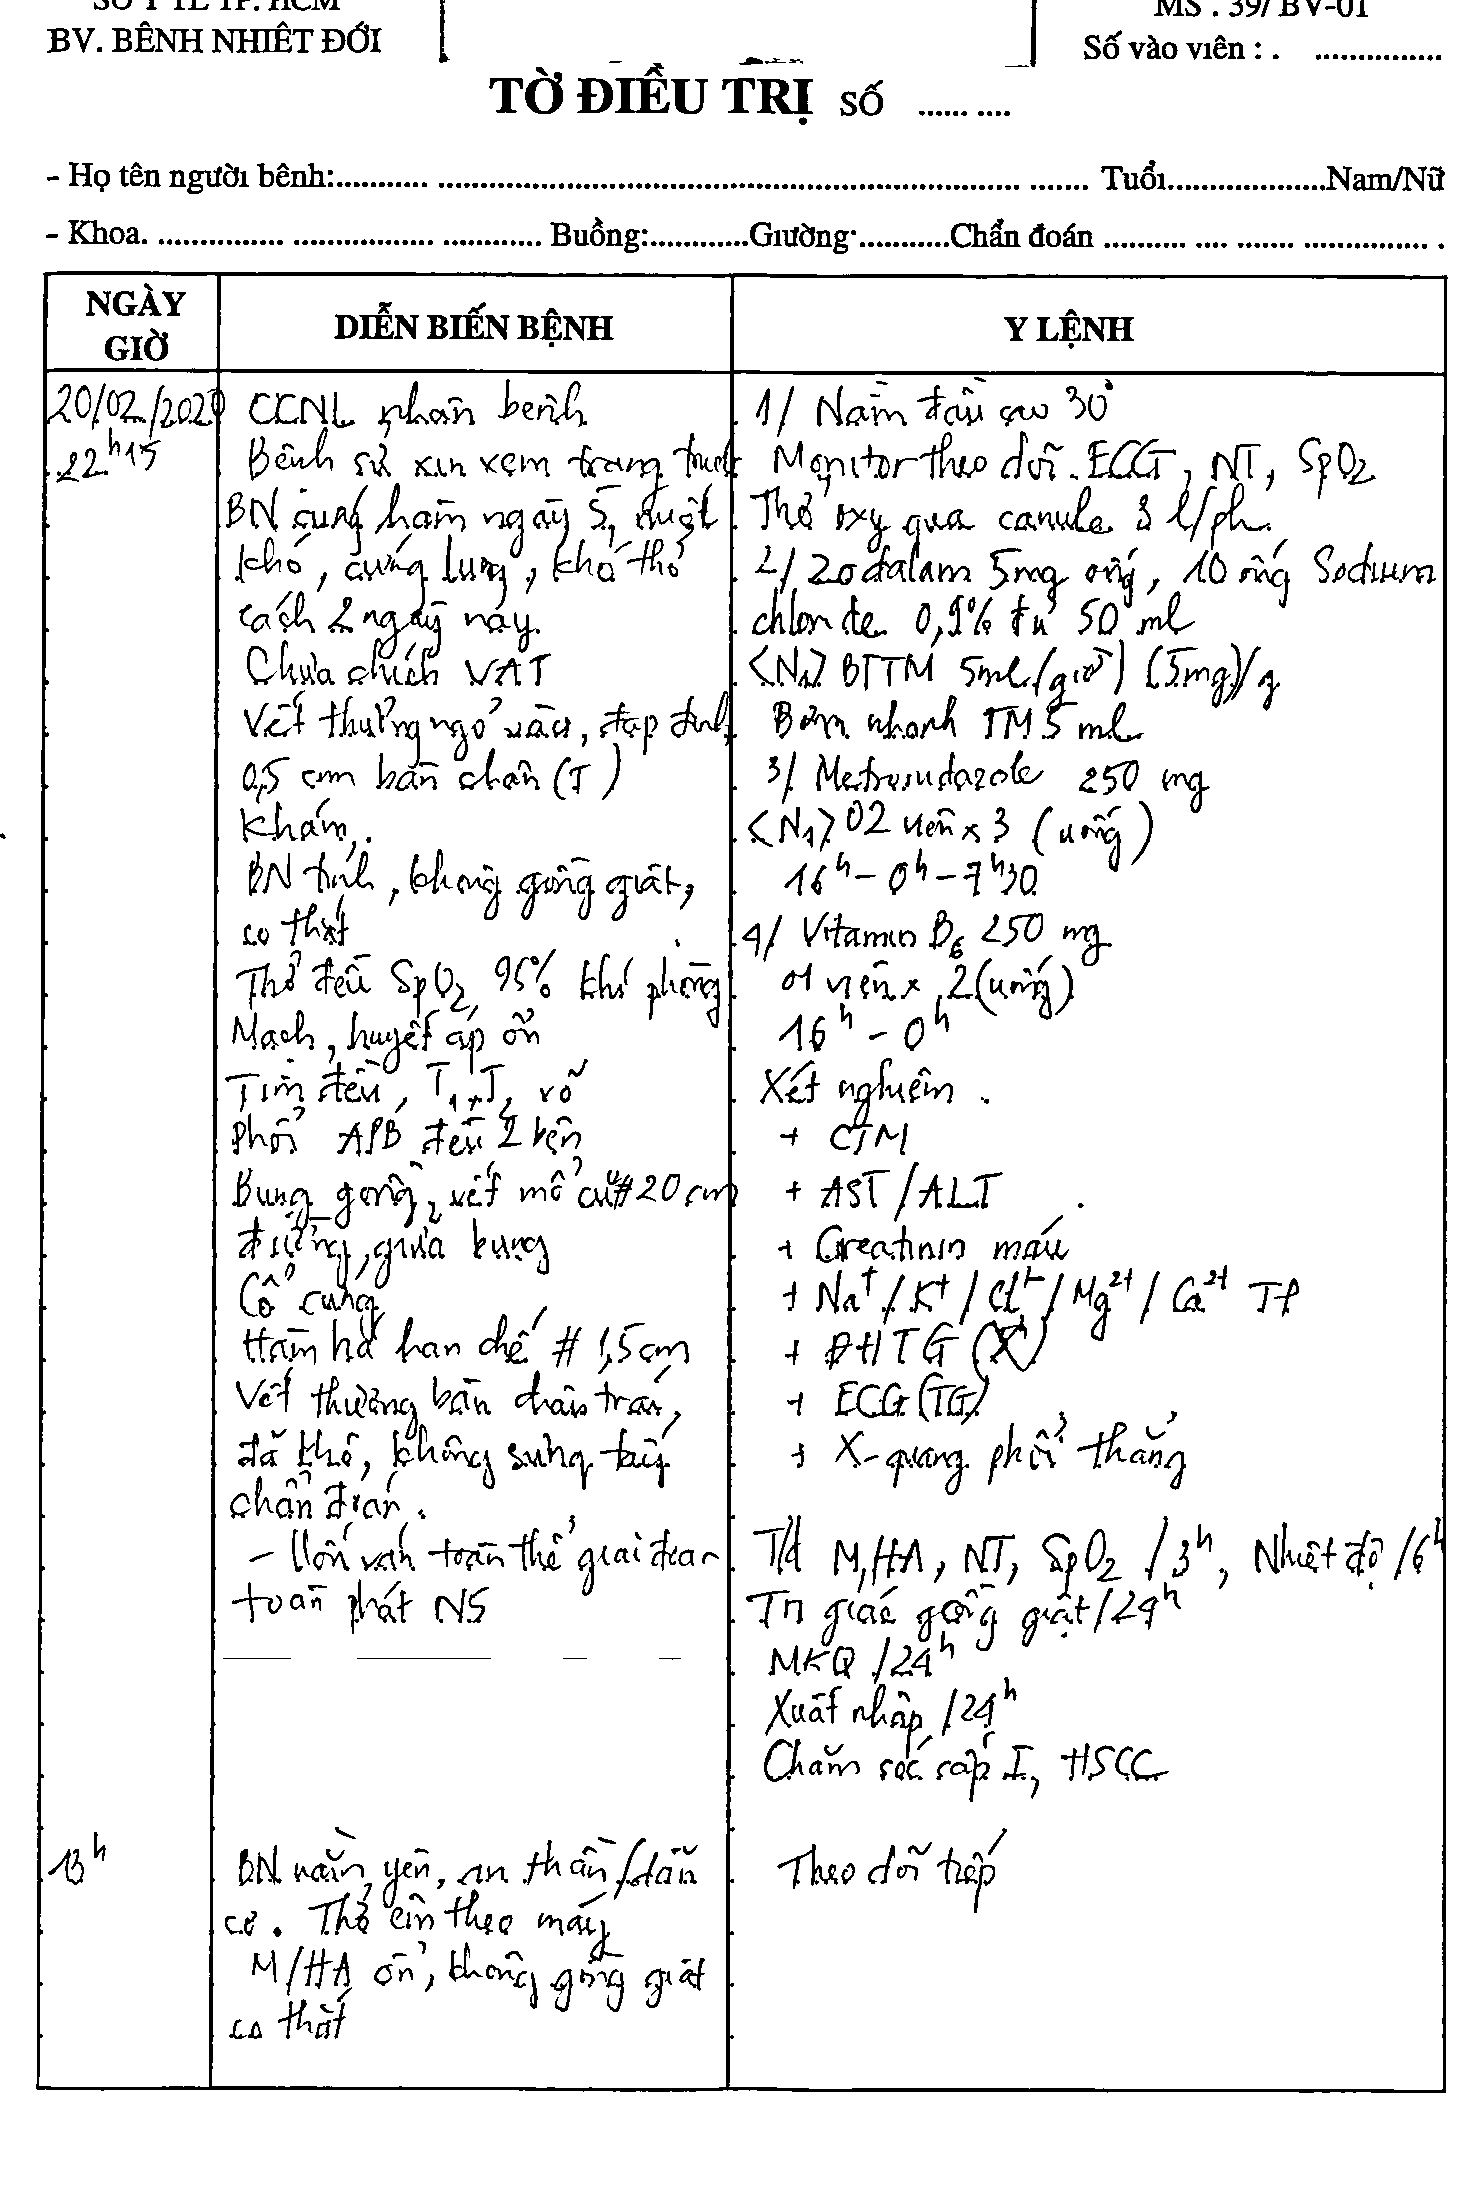 SỞ Y TẾ TP. HCM
BV. BỆNH NHIỆT ĐỚI
MS : 39/ BV-01
Số vào viện : . ...............
TỜ ĐIỀU TRỊ SỐ ...... ....
- Họ tên người bệnh:........... ...................................................................... ....... Tuổi...................Nam/Nữ
- Khoa. ............... ................. ............ Buồng:............Giường ...........Chẩn đoán .......... .... ....... ............... .
NGÀY GIỜ
DIỄN BIẾN BỆNH
Y LỆNH
20/02/2020
22h15
CCNL nhận bệnh
Bệnh sử xin xem trang trước
BN cứng hàm ngày 5, nuốt
khó, cứng lưng, khó thở
cách 2 ngày nay.
Chưa chích VAT
Vết thương ngõ vào, đạp đinh,
0,5 cm bàn chân (T)
Khám:
BN tỉnh, không gồng giật,
co thắt
Thở đều SpO2 95% khí phòng
Mạch, huyết áp ổn
Tim đều, T1, T2 rõ
Phổi APB đều 2 bên
Bụng gồng, vết mổ cũ #20 cm
đường giữa bụng
Cổ cứng
Hàm há hạn chế # 1,5cm
Vết thương bàn chân trái,
đã khô, không sưng tấy
chẩn đoán.
- Uốn ván toàn thể giai đoạn
toàn phát N5
1/ Nằm đầu cao 30°
Monitor theo dõi ECG, NT, SpO2
Thở oxy qua canule 3 l/ph.
2/ Zodalam 5mg ống, 10 ống Sodium
chloride 0,9% đủ 50 ml
<N1> BTTM 5ml/(giờ) (5mg)/g
Bơm nhanh TM 5 ml
3/ Metronidazole 250 mg
<N1> 02 viên x 3 (uống)
16h - 0h - 7h30
4/ Vitamin B6 250 mg
01 viên x 2 (uống)
16h - 0h
Xét nghiệm.
+ CTM
+ AST/ALT
+ Creatinin máu
+ Na+/K+/Cl-/Mg2+/Ca2+ TP
+ ĐHTG (X)
+ ECG (TG)
+ X-quang phổi thẳng
T/d M, HA, NT, SpO2 /3h, Nhiệt độ /6h
Tri giác gồng giật/24h
MKQ /24h
Xuất nhập /24h
Chăm sóc cấp I, HSCC
13h
BN nằm yên, an thần/dãn
cơ. Thở êm theo máy
M/HA ổn, không gồng giật
co thắt
Theo dõi tiếp